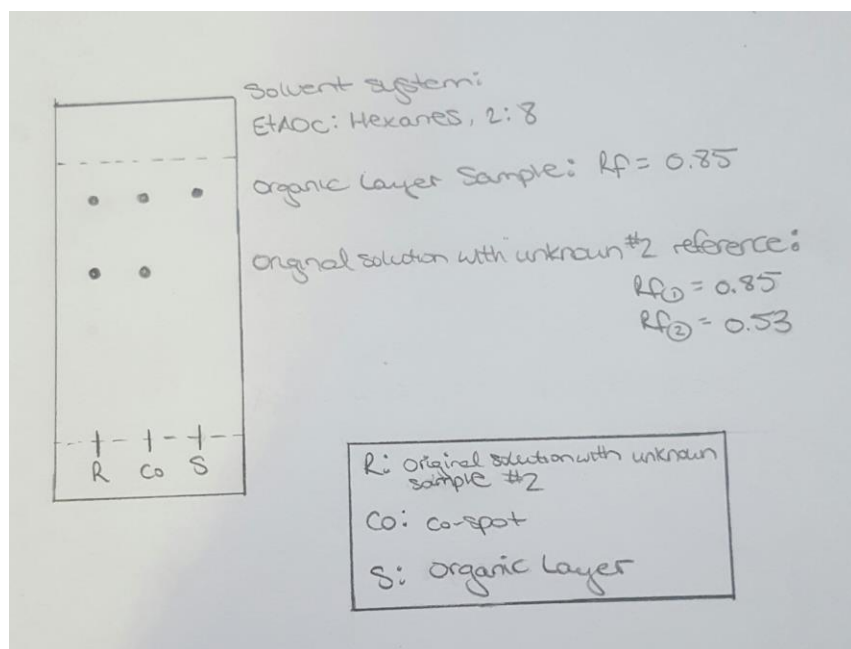 Solvent system:
EtAOC: Hexanes, 2:8
Organic Layer Sample: Rf = 0.85
Original solution with unknown #2 reference:
Rf① = 0.85
Rf② = 0.53
R Co S
R: Original solution with unknown
sample #2
Co: Co-spot
S: Organic Layer